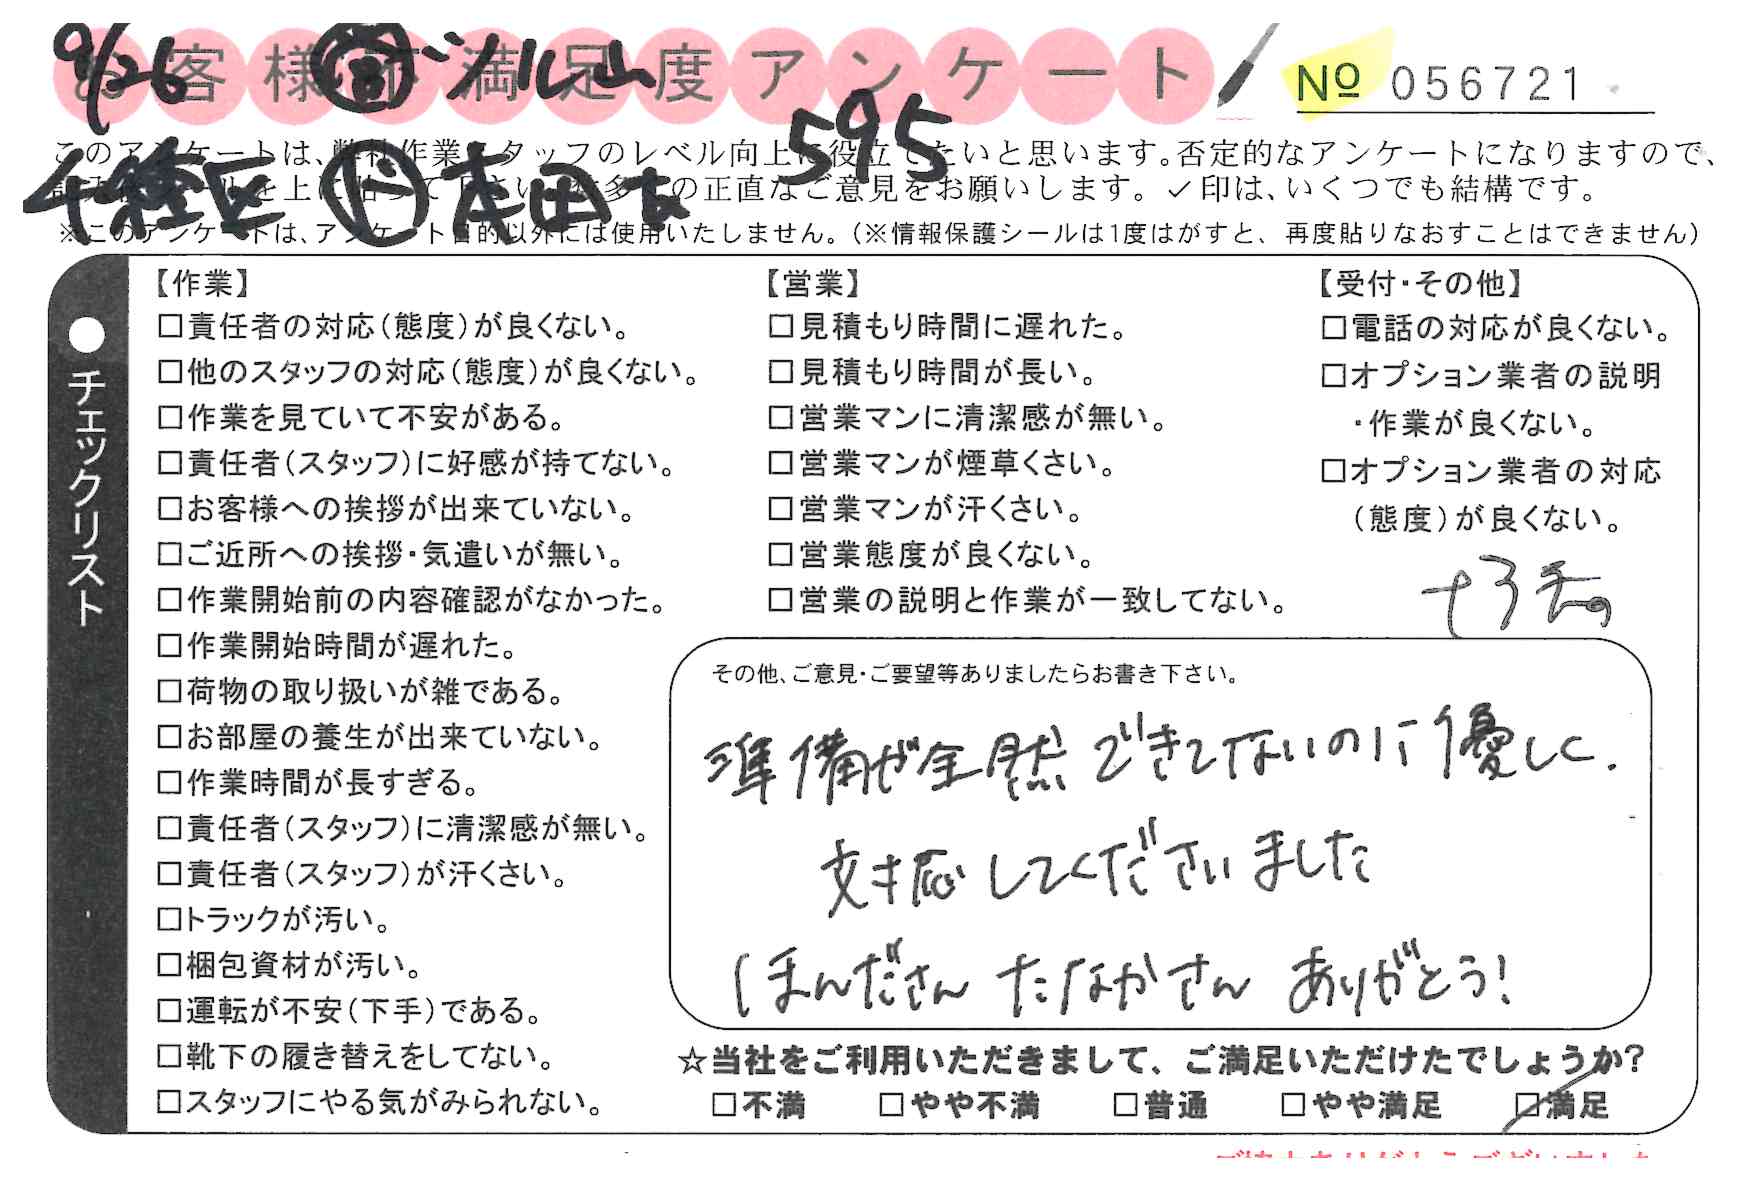 お客様不満足度アンケート
№ 056721
9/26
595
このアンケートは、弊社作業スタッフのレベル向上に役立てたいと思います。否定的なアンケートになりますので、
を上に貼って下さい。数多くの正直なご意見をお願いします。✓印は、いくつでも結構です。
千種区 ド 本田
※このアンケートは、アンケート目的以外には使用いたしません。(※情報保護シールは1度はがすと、再度貼りなおすことはできません)
●チェックリスト
【作業】
□責任者の対応(態度)が良くない。
□他のスタッフの対応(態度)が良くない。
□作業を見ていて不安がある。
□責任者(スタッフ)に好感が持てない。
□お客様への挨拶が出来ていない。
□ご近所への挨拶・気遣いが無い。
□作業開始前の内容確認がなかった。
□作業開始時間が遅れた。
□荷物の取り扱いが雑である。
□お部屋の養生が出来ていない。
□作業時間が長すぎる。
□責任者(スタッフ)に清潔感が無い。
□責任者(スタッフ)が汗くさい。
□トラックが汚い。
□梱包資材が汚い。
□運転が不安(下手)である。
□靴下の履き替えをしてない。
□スタッフにやる気がみられない。
【営業】
□見積もり時間に遅れた。
□見積もり時間が長い。
□営業マンに清潔感が無い。
□営業マンが煙草くさい。
□営業マンが汗くさい。
□営業態度が良くない。
□営業の説明と作業が一致してない。
【受付・その他】
□電話の対応が良くない。
□オプション業者の説明
・作業が良くない。
□オプション業者の対応
(態度)が良くない。
その他、ご意見・ご要望等ありましたらお書き下さい。
準備が全然できてないのに優しく.
対応してくださいました
ほんださん たなかさん ありがとう!
☆当社をご利用いただきまして、ご満足いただけたでしょうか?
□不満 □やや不満 □普通 □やや満足 □満足